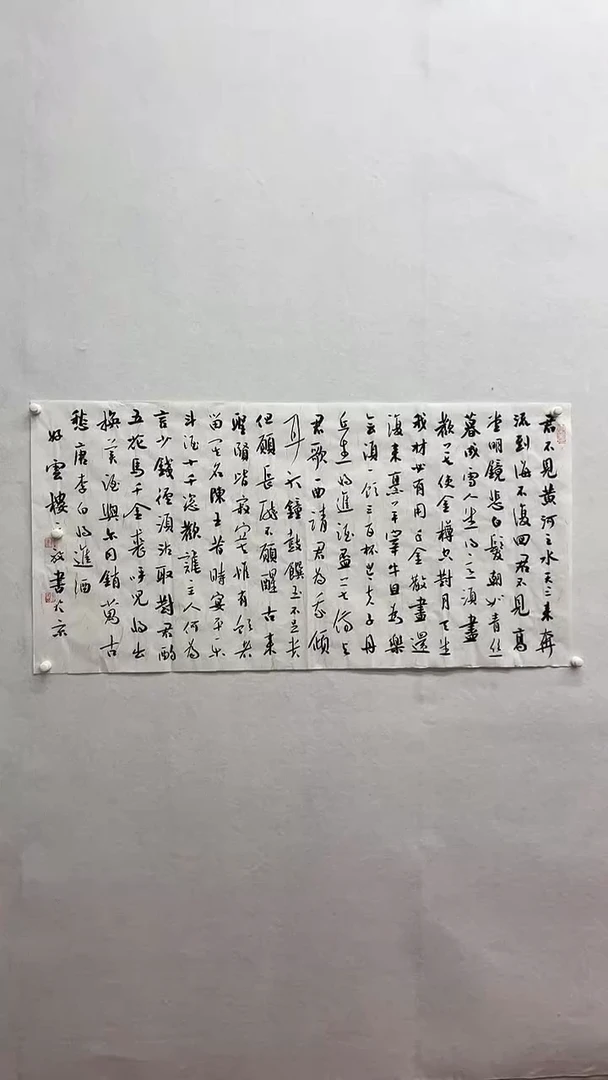 君不見黄河之水天上来奔
流到海不復回君不見高
堂明鏡悲白髮朝如青丝
暮成雪人生得意須盡
歡莫使金樽空對月天生
我材必有用千金散盡還
復来烹羊宰牛且為樂
會須飲三百杯岑夫子丹
丘生将進酒盃莫停与
君歌一曲請君為我傾
耳聽鐘鼓饌玉不足貴
但願長醉不願醒古来
聖賢皆寂寞惟有飲者
留其名陳王昔時宴平乐
斗酒十千恣歡謔主人何為
言少錢径須沽取對君酌
五花馬千金裘呼兒将出
換美酒與尔同銷萬古
愁唐李白将進酒
好雲樓主書於京